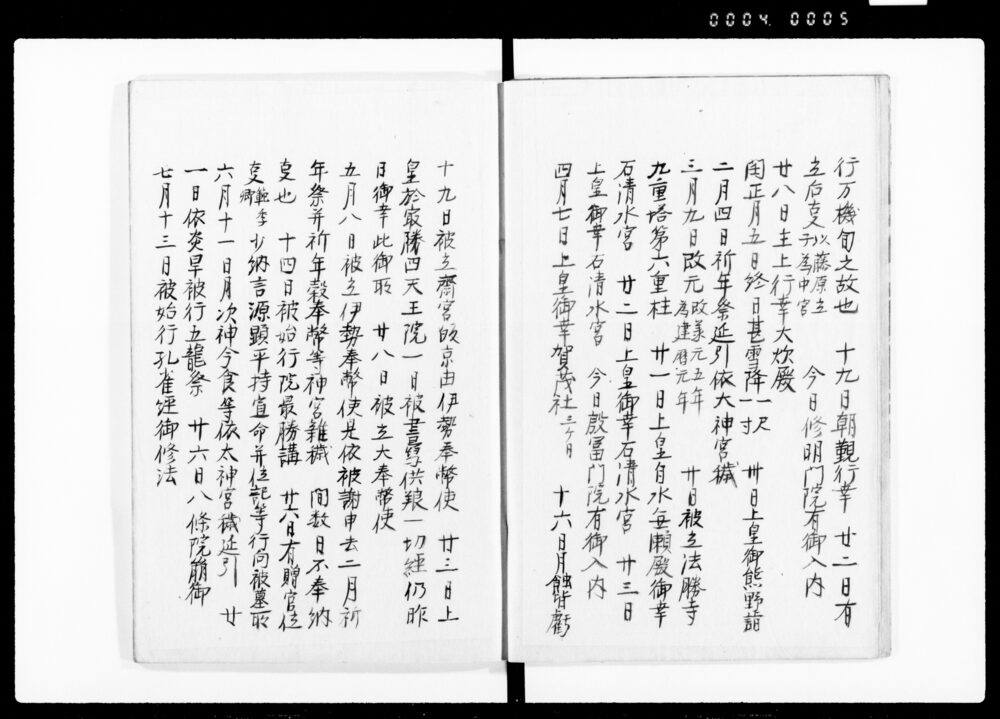 0004. 0005
行万機旬之故也　十九日朝覲行幸　廿二日有
立后㕝以藤原立子為中宮　今日修明門院有御入内
廿八日主上行幸大炊殿
閏正月五日終日甚雪降一尺一寸　卅日上皇御熊野詣
二月四日祈年祭延引依大神宮穢
三月九日改元改承元五年為建暦元年　廿日被立法勝寺
九重塔第六重柱　廿一日上皇自水無瀬殿御幸
石清水宮　廿二日上皇御幸石清水宮　廿三日
上皇御幸石清水宮　今日殷冨門院有御入内
四月七日上皇御幸賀茂社三ケ日　十六日月蝕皆虧
十九日被立齋宮皈京由伊勢奉幣使　廿三日上
皇於㝡勝四天王院一日被書寫供粮一切經仍昨
日御幸此御所　廿八日被立大奉幣使
五月八日被立伊勢奉幣使是依被謝申去二月祈
年祭并祈年穀奉幣等神宮雜穢　間数日不奉納
㕝也　十四日被始行院最勝講　廿六日有贈官位
㕝範季卿少納言源顕平持宣命并位記等行向被墓所
六月十一日月次神今食等依太神宮穢延引　廿
一日依炎旱被行五龍祭　廿六日八條院崩御
七月十三日被始行孔雀經御修法